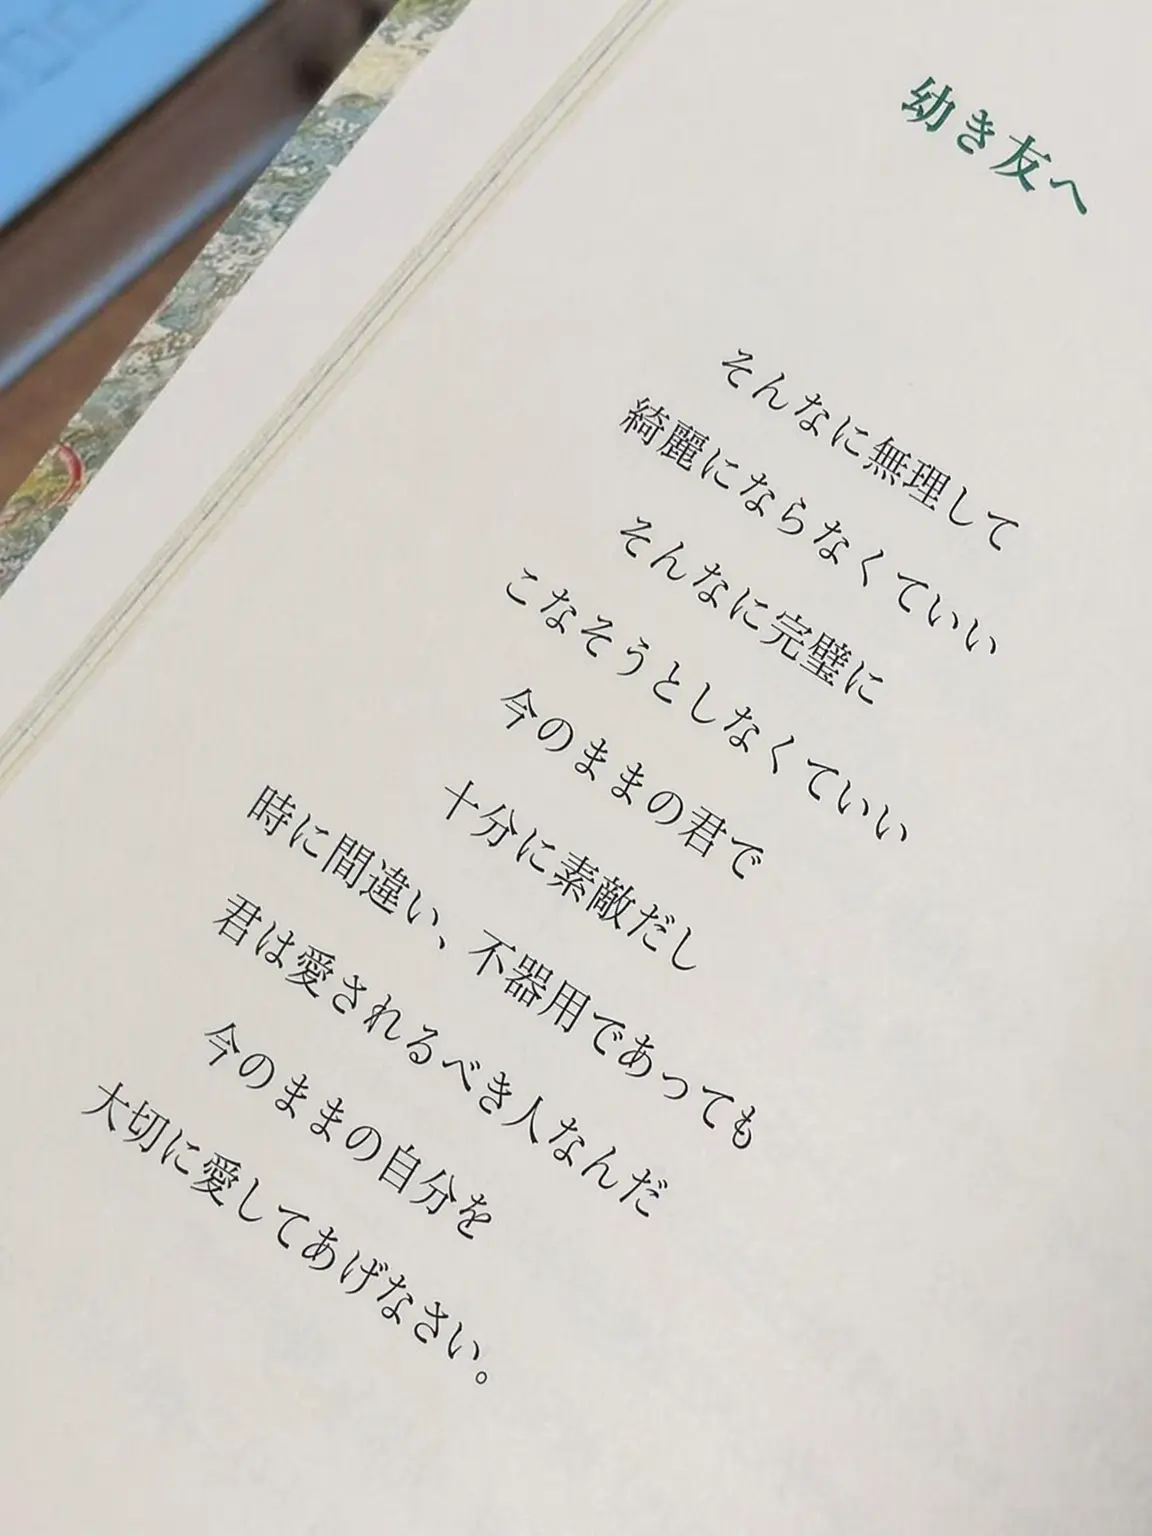 幼き友へ
そんなに無理して
綺麗にならなくていい
そんなに完璧に
こなそうとしなくていい
今のままの君で
十分に素敵だし
時に間違い、不器用であっても
君は愛されるべき人なんだ
今のままの自分を
大切に愛してあげなさい。